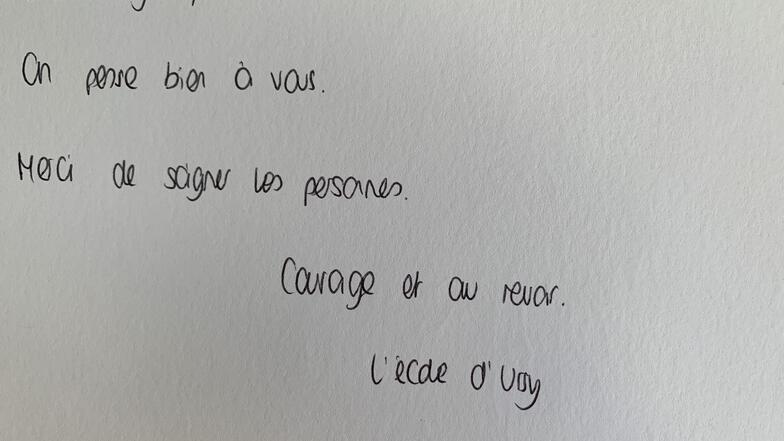 On pense bien à vous.
Merci de soigner les personnes.
Courage et au revoir.
L'école d'Uoy